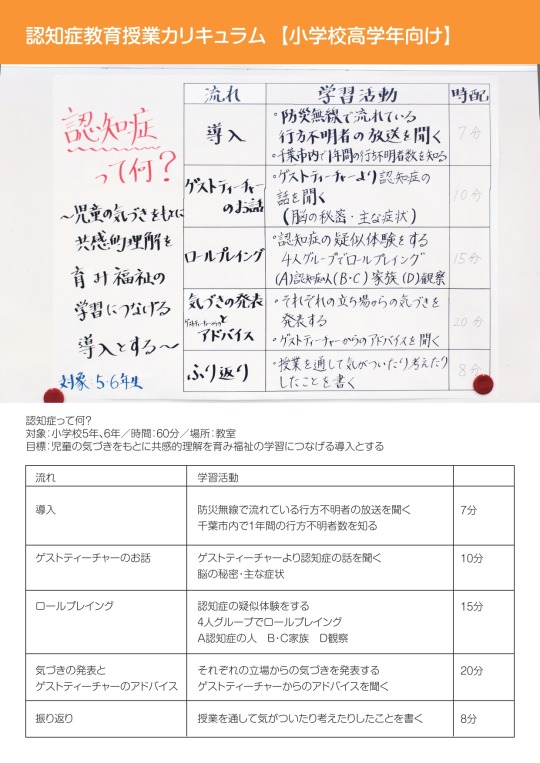 認知症教育授業カリキュラム 【小学校高学年向け】
認知症
って何?
〜児童の気づきをもとに
共感的理解を
育み福祉の
学習につなげる
導入とする〜
対象:5・6年生
流れ 学習活動 時配
導入 ・防災無線で流れている 7分
行方不明者の放送を聞く
・千葉市内で1年間の行方不明者数を知る
ゲストティーチャー ・ゲストティーチャーより認知症の 10分
のお話 話を聞く
(脳の秘密・主な症状)
ロールプレイング ・認知症の疑似体験をする 15分
4人グループでロールプレイング
(A)認知症の人(B・C)家族(D)観察
気づきの発表 ・それぞれの立ち場からの気づきを 20分
と 発表する
ゲストティーチャーの
アドバイス ・ゲストティーチャーからのアドバイスを聞く
ふり返り ・授業を通して気がついたり考えたり 8分
したことを書く
認知症って何?
対象:小学校5年、6年/時間:60分/場所:教室
目標:児童の気づきをもとに共感的理解を育み福祉の学習につなげる導入とする
流れ 学習活動
導入 防災無線で流れている行方不明者の放送を聞く 7分
千葉市内で1年間の行方不明者数を知る
ゲストティーチャーのお話 ゲストティーチャーより認知症の話を聞く 10分
脳の秘密・主な症状
ロールプレイング 認知症の疑似体験をする 15分
4人グループでロールプレイング
A認知症の人 B・C家族 D観察
気づきの発表と それぞれの立場からの気づきを発表する 20分
ゲストティーチャーのアドバイス ゲストティーチャーからのアドバイスを聞く
振り返り 授業を通して気がついたり考えたりしたことを書く 8分